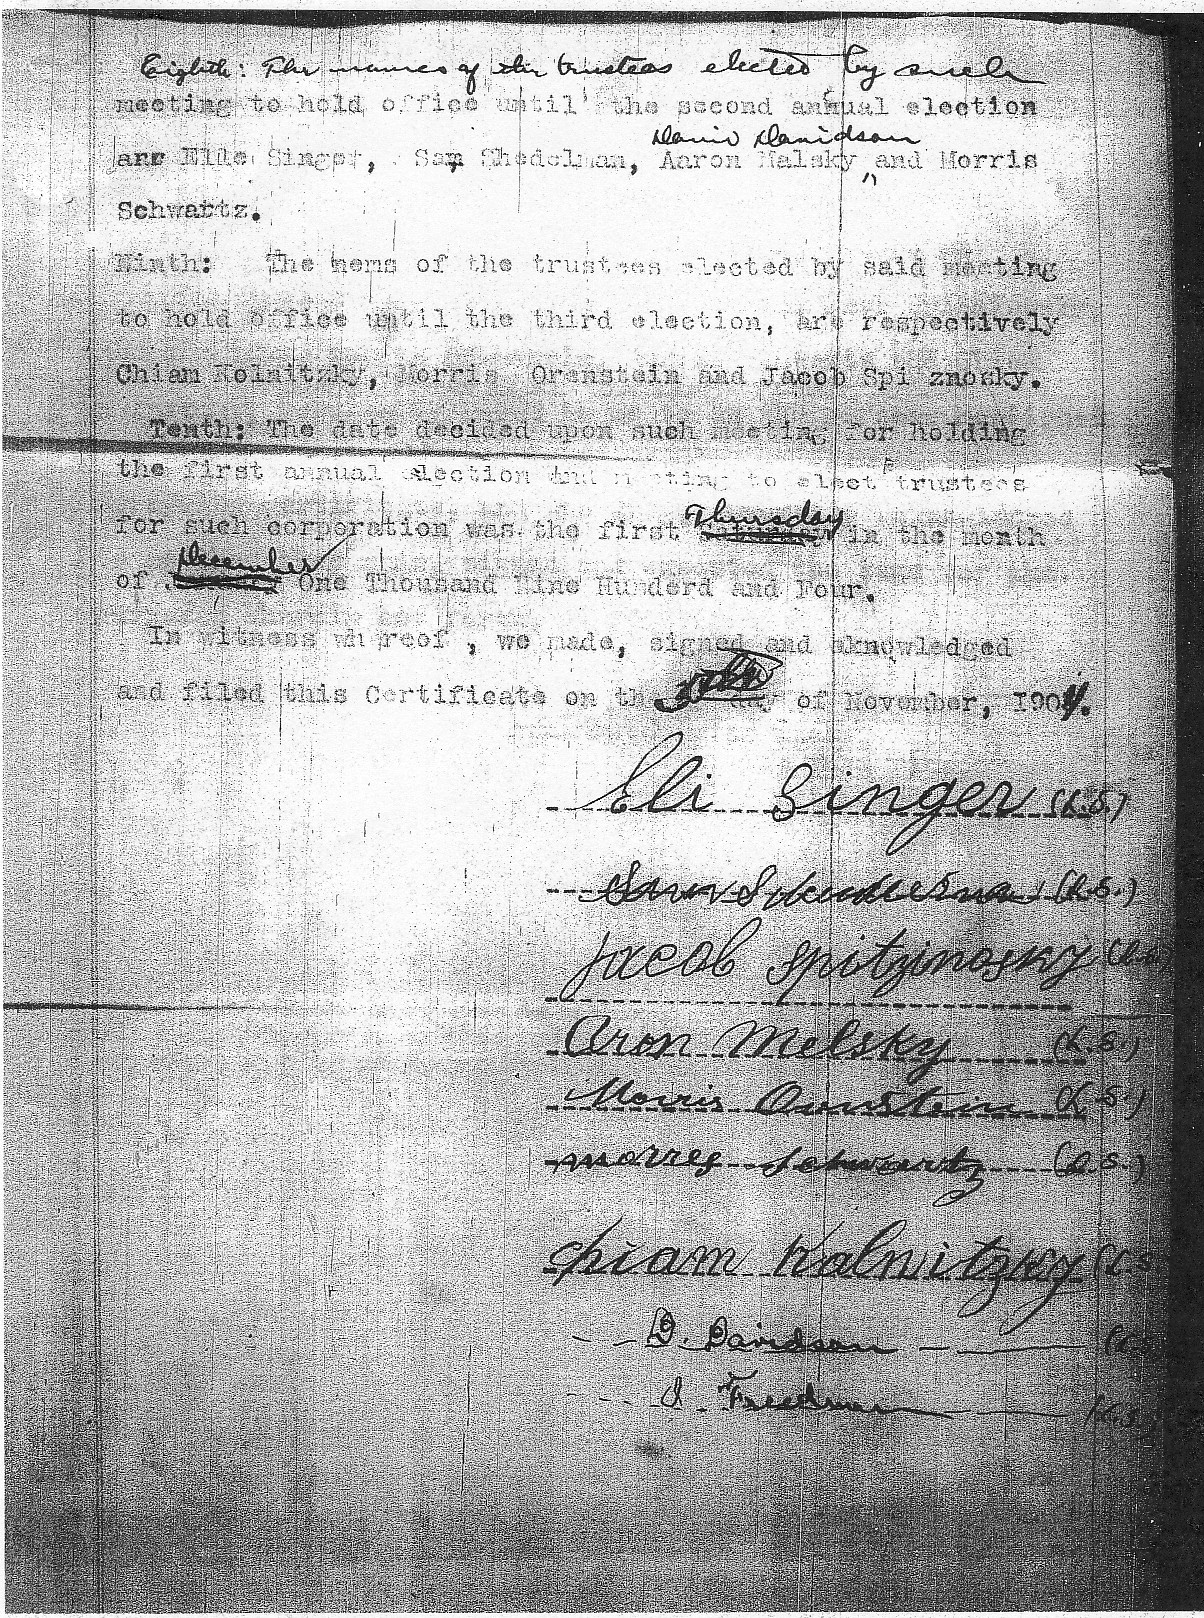 Eighth: The names of the trustees elected by such
meeting to hold office until the second annual election
David Davidson
are Elle Singer, Sam Shedelman, Aaron Malsky and Morris
Schwartz.
Ninth: The nems of the trustees elected by said meeting
to hold office until the third election, are respectively
Chiam Kolnitzky, Morris Orenstein and Jacob Spi znosky.
Tenth: The date decided upon such meeting for holding
the first annual election and meeting to elect trustees
for such corporation was the first Thursday in the month
of December One Thousand Nine Hunderd and Four.
In witness whereof, we made, signed and aknowledged
and filed this Certificate on the day of November, 1904.
Eli Singer (L.S.)
Sam (L.S.)
Jacob Spitzinosky (L.S.)
Aron Melsky (L.S.)
Morris Orenstein (L.S.)
Morres Schwartz (L.S.)
Chiam Kalnitzky (L.S
D. Davidson
I. Freedman (L.S.